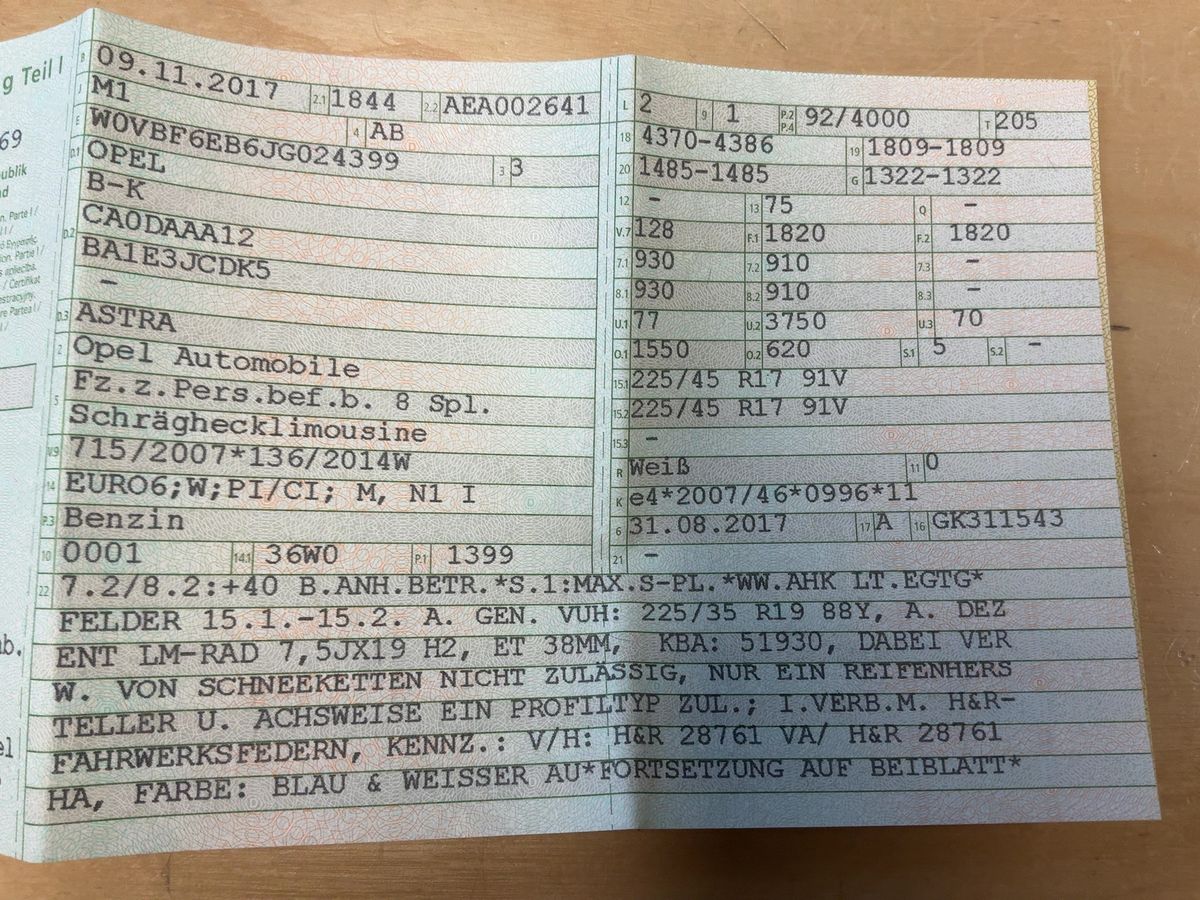 g Teil I
69
publik
B 09.11.2017 2.1 1844 2.2 AEA002641
J M1 4 AB
E W0VBF6EB6JG024399 3 3
D.1 OPEL
B-K
D.2 CA0DAAA12
BA1E3JCDK5
-
D.3 ASTRA
2 Opel Automobile
5 Fz.z.Pers.bef.b. 8 Spl.
Schräghecklimousine
V.9 715/2007*136/2014W
14 EURO6;W;PI/CI; M, N1 I
P.3 Benzin
10 0001 14.1 36W0 P.1 1399
L 2 9 1 P.2 P.4 92/4000 T 205
18 4370-4386 19 1809-1809
20 1485-1485 G 1322-1322
12 - 13 75 Q -
V.7 128 F.1 1820 F.2 1820
7.1 930 7.2 910 7.3 -
8.1 930 8.2 910 8.3 -
U.1 77 U.2 3750 U.3 70
O.1 1550 O.2 620 S.1 5 S.2 -
15.1 225/45 R17 91V
15.2 225/45 R17 91V
15.3 -
R Weiß 11 0
K e4*2007/46*0996*11
6 31.08.2017 17 A 16 GK311543
21 -
22 7.2/8.2:+40 B.ANH.BETR.*S.1:MAX.S-PL.*WW.AHK LT.EGTG*
FELDER 15.1.-15.2. A. GEN. VUH: 225/35 R19 88Y, A. DEZ
ENT LM-RAD 7,5JX19 H2, ET 38MM, KBA: 51930, DABEI VER
W. VON SCHNEEKETTEN NICHT ZULÄSSIG, NUR EIN REIFENHERS
TELLER U. ACHSWEISE EIN PROFILTYP ZUL.; I.VERB.M. H&R-
FAHRWERKSFEDERN, KENNZ.: V/H: H&R 28761 VA/ H&R 28761
HA, FARBE: BLAU & WEISSER AU*FORTSETZUNG AUF BEIBLATT*